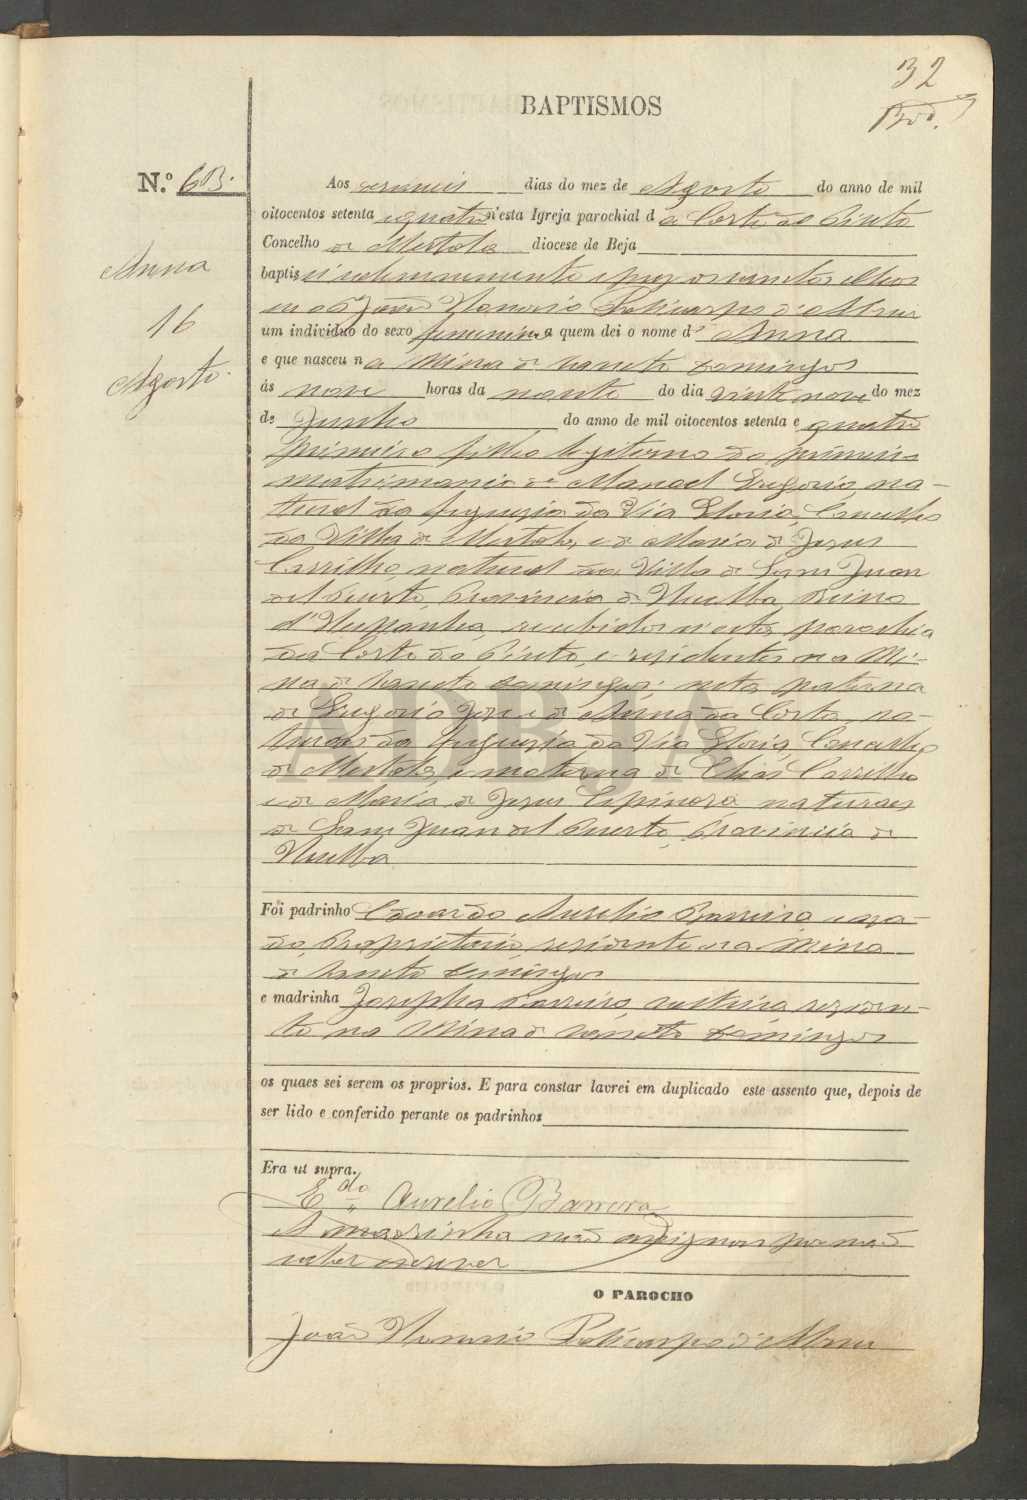 32
BAPTISMOS
N.º 63.
Anna
16
Agosto
Aos deseseis dias do mez de Agosto do anno de mil
oitocentos setenta equatro n'esta Igreja parochial d a Corte do Pinto
Concelho de Mertola diocese de Beja
baptisei solemnemente e puz os sanctos Oleos
eu o João Honorio Policarpo d'Abreu
um individuo do sexo feminino a quem dei o nome de Anna
e que nasceu na Mina de Sancto Domingos
ás nove horas da noute do dia vinte nove do mez
de Junho do anno de mil oitocentos setenta e quatro
primeiro filho legitimo do primeiro
matrimonio de Manoel Gregorio, na-
tural da freguezia da Via Gloria, Concelho
da Villa de Mertola, e de Maria de Jesus
Carrilho, natural da Villa de San Juan
del Puerto, Provincia de Huelba, Reino
d'Hespanha, recebidos n'esta parochia
da Corte do Pinto, e residentes na Mi-
na de Sancto Domingos; neta paterna
de Gregorio José e de Anna da Costa, na-
turaes da freguezia da Via Gloria, Concelho
de Mertola, e materna de Elias Carrilho
e de Maria de Jesus Espinosa, naturaes
de San Juan del Puerto, Provincia de
Huelba
Foi padrinho Eduardo Aurelio Barreira, casa-
do, Proprietario, residente na Mina
de Sancto Domingos
e madrinha Josepha Barreira, solteira, residen-
te na Mina de Sancto Domingos
os quaes sei serem os proprios. E para constar lavrei em duplicado este assento que, depois de
ser lido e conferido perante os padrinhos
Era ut supra.
Edo Aurelio Barrera
A madrinha não assignou por não
saber escrever
O PAROCHO
João Honorio Policarpo d'Abreu
ADBJA